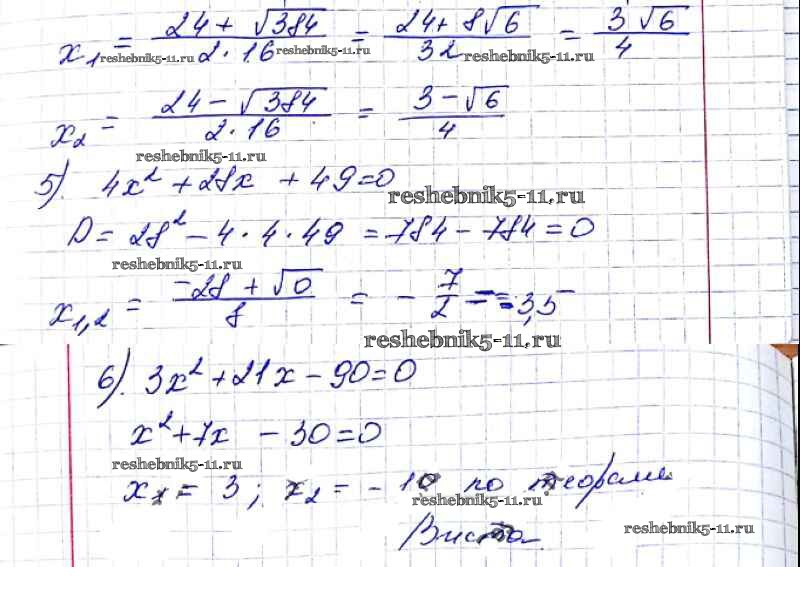 x₁ = (24 + √384)/(2·16) = (24 + 8√6)/32 = (3 √6)/4
reshebnik5-11.ru reshebnik5-11.ru reshebnik5-11.ru
x₂ = (24 - √384)/(2·16) = (3 - √6)/4
reshebnik5-11.ru
5). 4x² + 28x + 49 = 0
reshebnik5-11.ru
D = 28² - 4·4·49 = 784 - 784 = 0
reshebnik5-11.ru
x₁,₂ = (-28 + √0)/8 = - 7/2 = 3,5
reshebnik5-11.ru
6). 3x² + 21x - 90 = 0
x² + 7x - 30 = 0
reshebnik5-11.ru
x₁ = 3; x₂ = - 10 по теореме
reshebnik5-11.ru
Виета
reshebnik5-11.ru